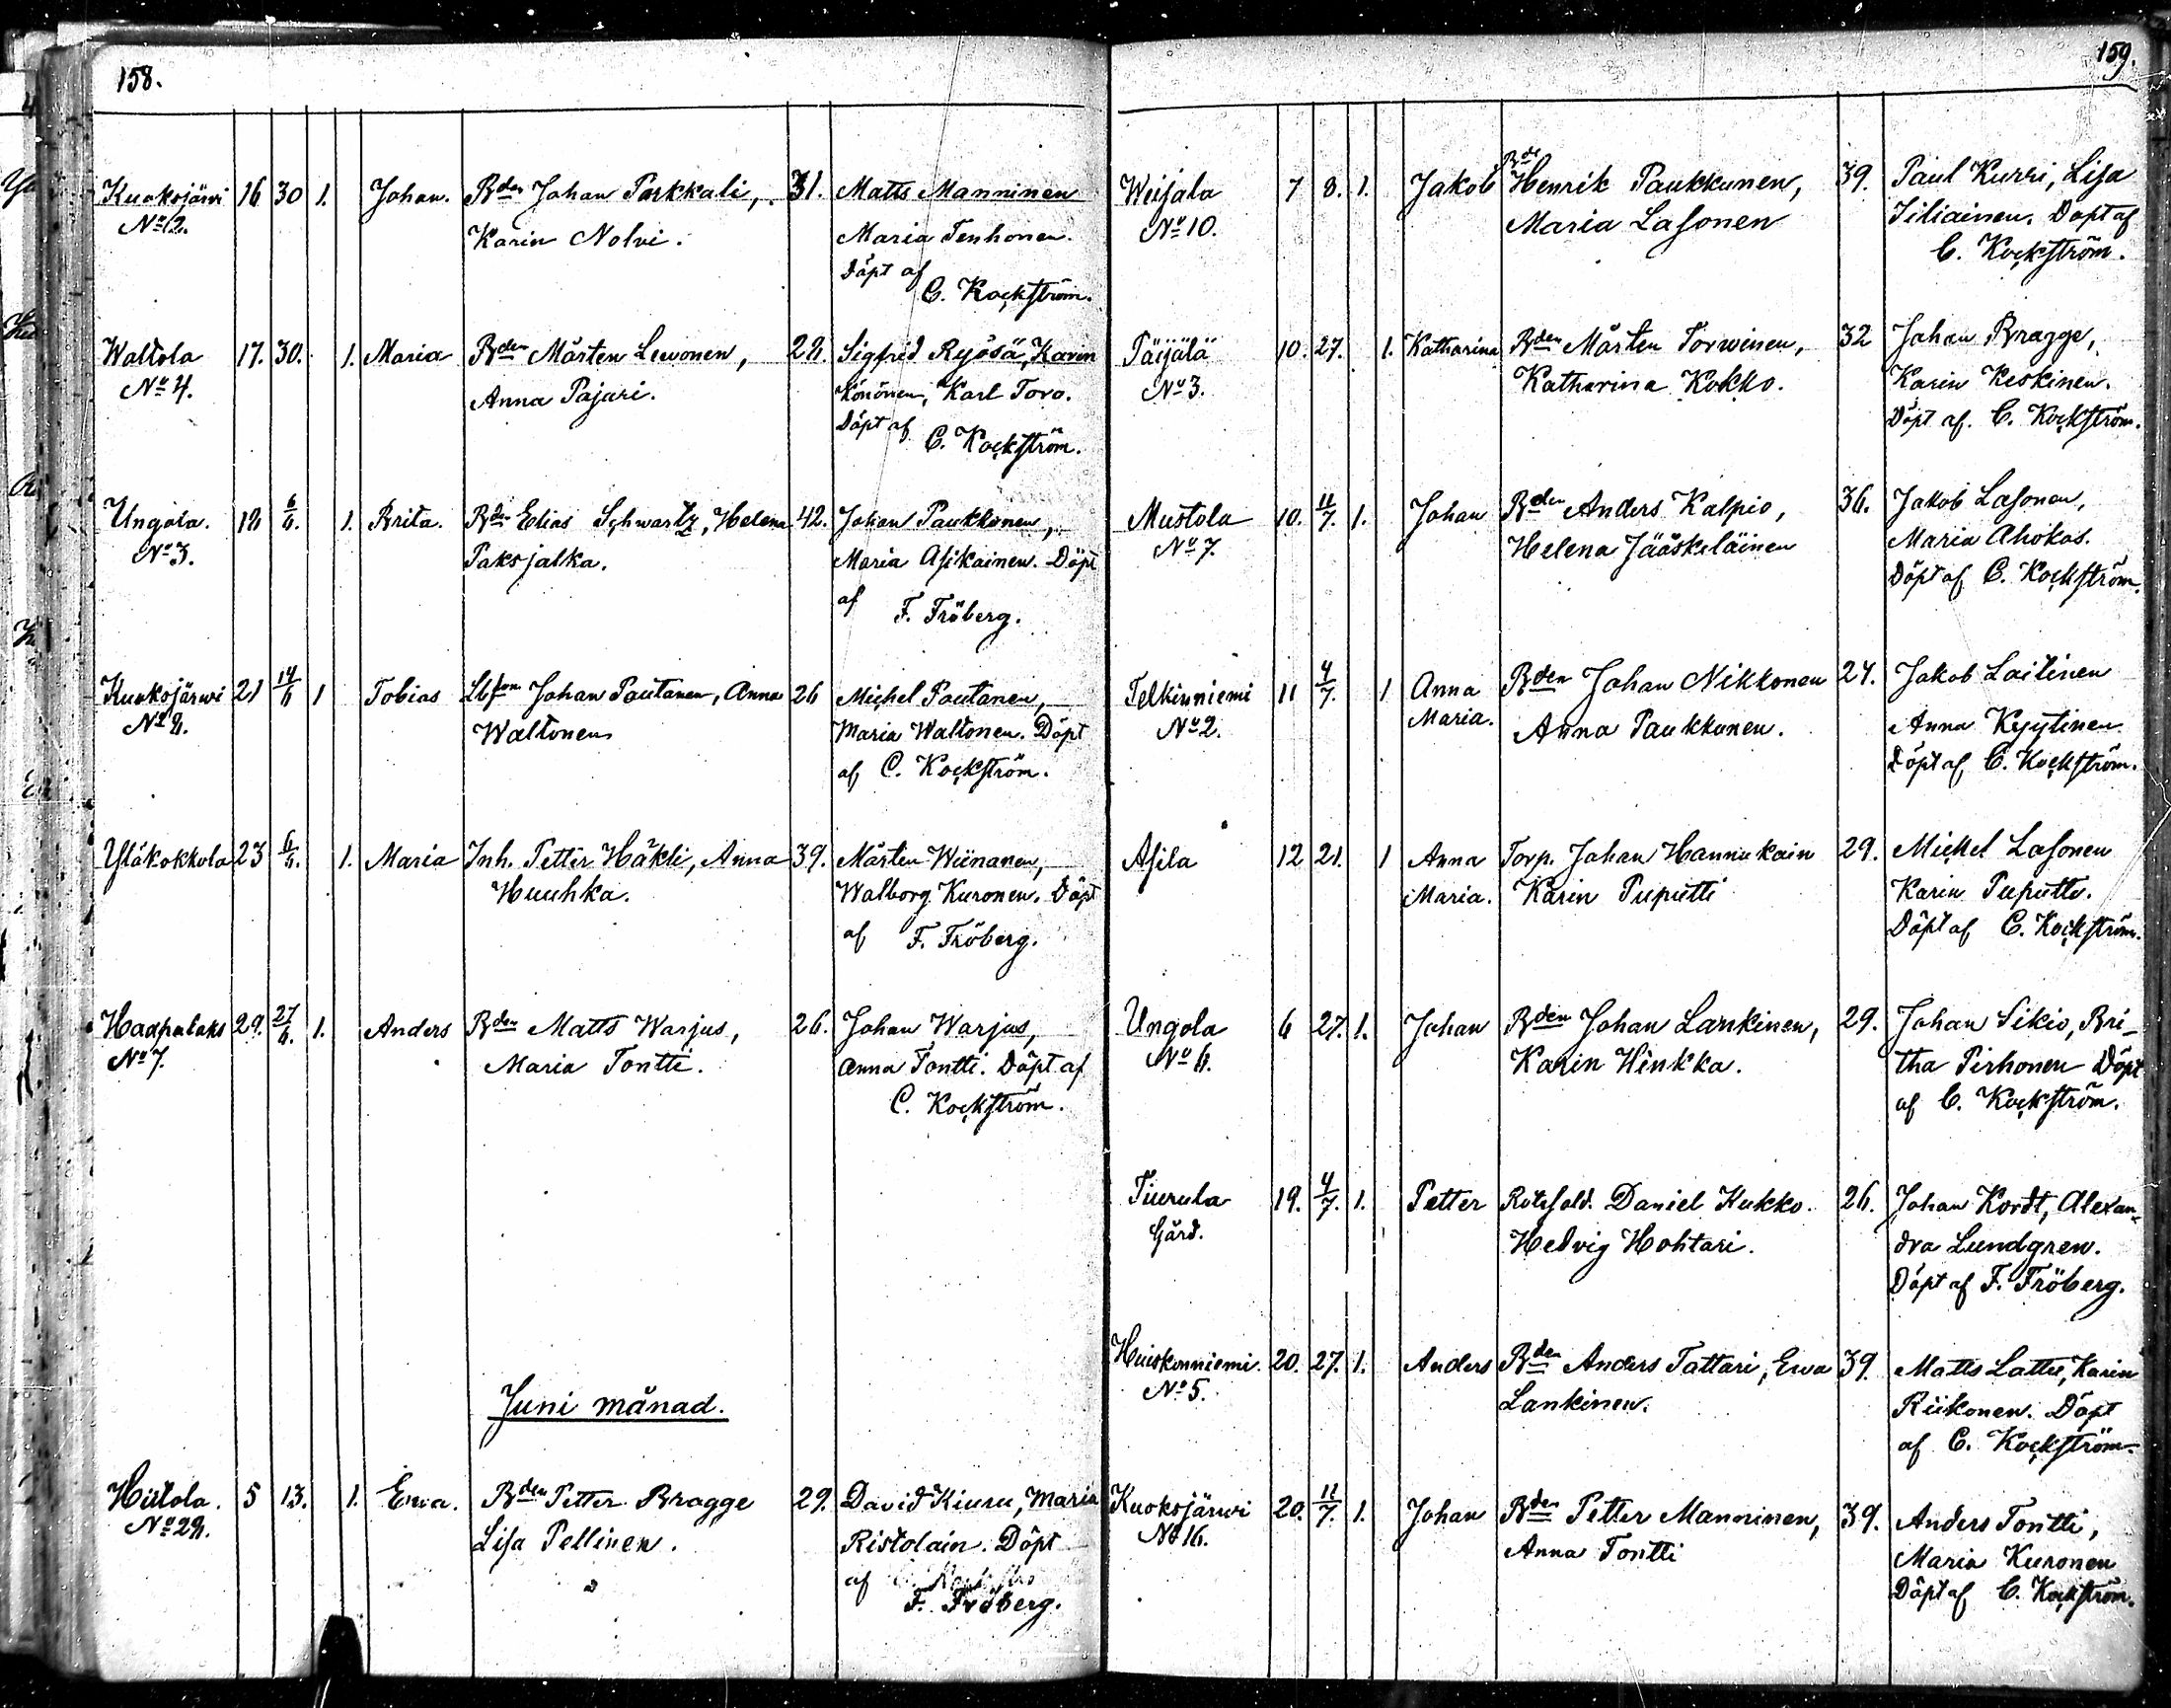 158.
Kuoksjärvi 16 30 1. Johan. Bden Johan Parkkali, 31. Matts Manninen
No 12. Karin Nolvi. Maria Tenhonen.
Döpt af
C. Kockström.
Waltola 17. 30. 1. Maria Bden Mårten Lewonen, 28. Sigfrid Ryösä, Karin
No 4. Anna Pajari. Könönen, Karl Toro.
Döpt af
C. Kockström.
Ungola. 18 6/6. 1. Brita. Bden Elias Schwartz, Helena 42. Johan Paukkonen,
No 3. Paksjalka. Maria Asikainen. Döpt
af F. Fröberg.
Kuoksjärwi 21 14/6 1 Tobias Lbfon Johan Pautanen, Anna 26 Michel Pautanen,
No 8. Waltonen Maria Waltonen. Döpt
af C. Kockström.
Yläkokkola 23 6/6. 1. Maria Inh. Petter Häkli, Anna 39. Mårten Wiinanen,
Huuhka. Walborg Kuronen. Döpt
af F. Fröberg.
Haapalaks 29. 27/6. 1. Anders Bden Matts Warjus, 26. Johan Warjus,
No 7. Maria Tontti. Anna Tontti. Döpt af
C. Kockström.
Juni månad.
Hiitola. 5 13. 1. Ewa. Bden Petter Bragge 29. David Kiuru, Maria
No 28. Lisa Pellinen. Ristolain. Döpt
af
F. Fröberg.
159.
Weijala 7 8. 1. Jakob Bde Henrik Paukkunen, 39. Paul Kurri, Lisa
No 10. Maria Lasonen Iiliainen. Döpt af
C. Kockström.
Päijälä 10. 27. 1. Katharina Bden Mårten Torwinen, 32 Johan Bragge,
No 3. Katharina Kokko. Karin Keskinen.
Döpt af. C. Kockström.
Mustola 10. 11/7. 1. Johan Bden Anders Kalpio, 36. Jakob Lasonen,
No 7. Helena Jääskeläinen Maria Ahokas.
Döpt af C. Kockström.
Telkinniemi 11 4/7. 1 Anna Bden Johan Nikkonen 24. Jakob Laitinen
No 2. Maria. Anna Paukkunen. Anna Kyytinen.
Döpt af C. Kockström.
Asila 12 21. 1 Anna Torp. Johan Hannukain 29. Michel Lasonen
Maria. Karin Puputti Karin Puputti.
Döpt af C. Kockström.
Ungola 6 27. 1. Johan Bden Johan Lankinen, 29. Johan Sikiö, Bri-
No 6. Karin Hinkka. tha Pirhonen Döpt
af C. Kockström.
Tiurula 19. 4/7. 1. Petter Rotesold. Daniel Kukko. 26. Johan Kordt, Alexan-
Gård. Hedvig Hohtari. dra Lundgren.
Döpt af F. Fröberg.
Huiskonniemi. 20. 27. 1. Anders Bden Anders Tattari, Ewa 39. Matts Lattu, Karin
No 5. Lankinen. Riikonen. Döpt
af C. Kockström.
Kuoksjärwi 20. 11/7. 1. Johan Bden Petter Manninen, 39. Anders Tontti,
No 16. Anna Tontti Maria Kuronen
Döpt af C. Kockström.